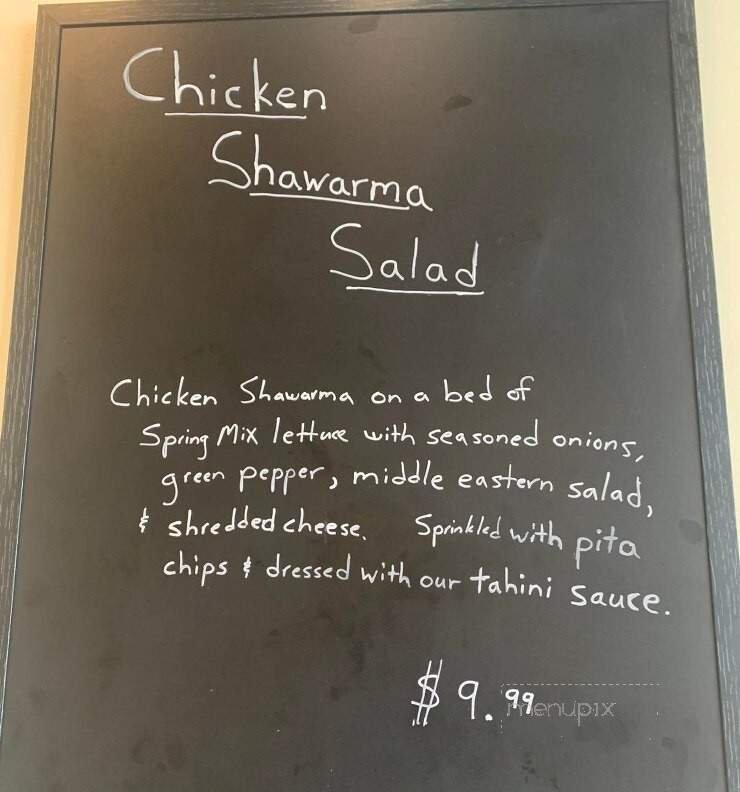 Chicken
Shawarma
Salad
Chicken Shawarma on a bed of
Spring Mix lettuce with seasoned onions,
green pepper, middle eastern salad,
& shredded cheese. Sprinkled with pita
chips & dressed with our tahini sauce.
$9.99
menupix